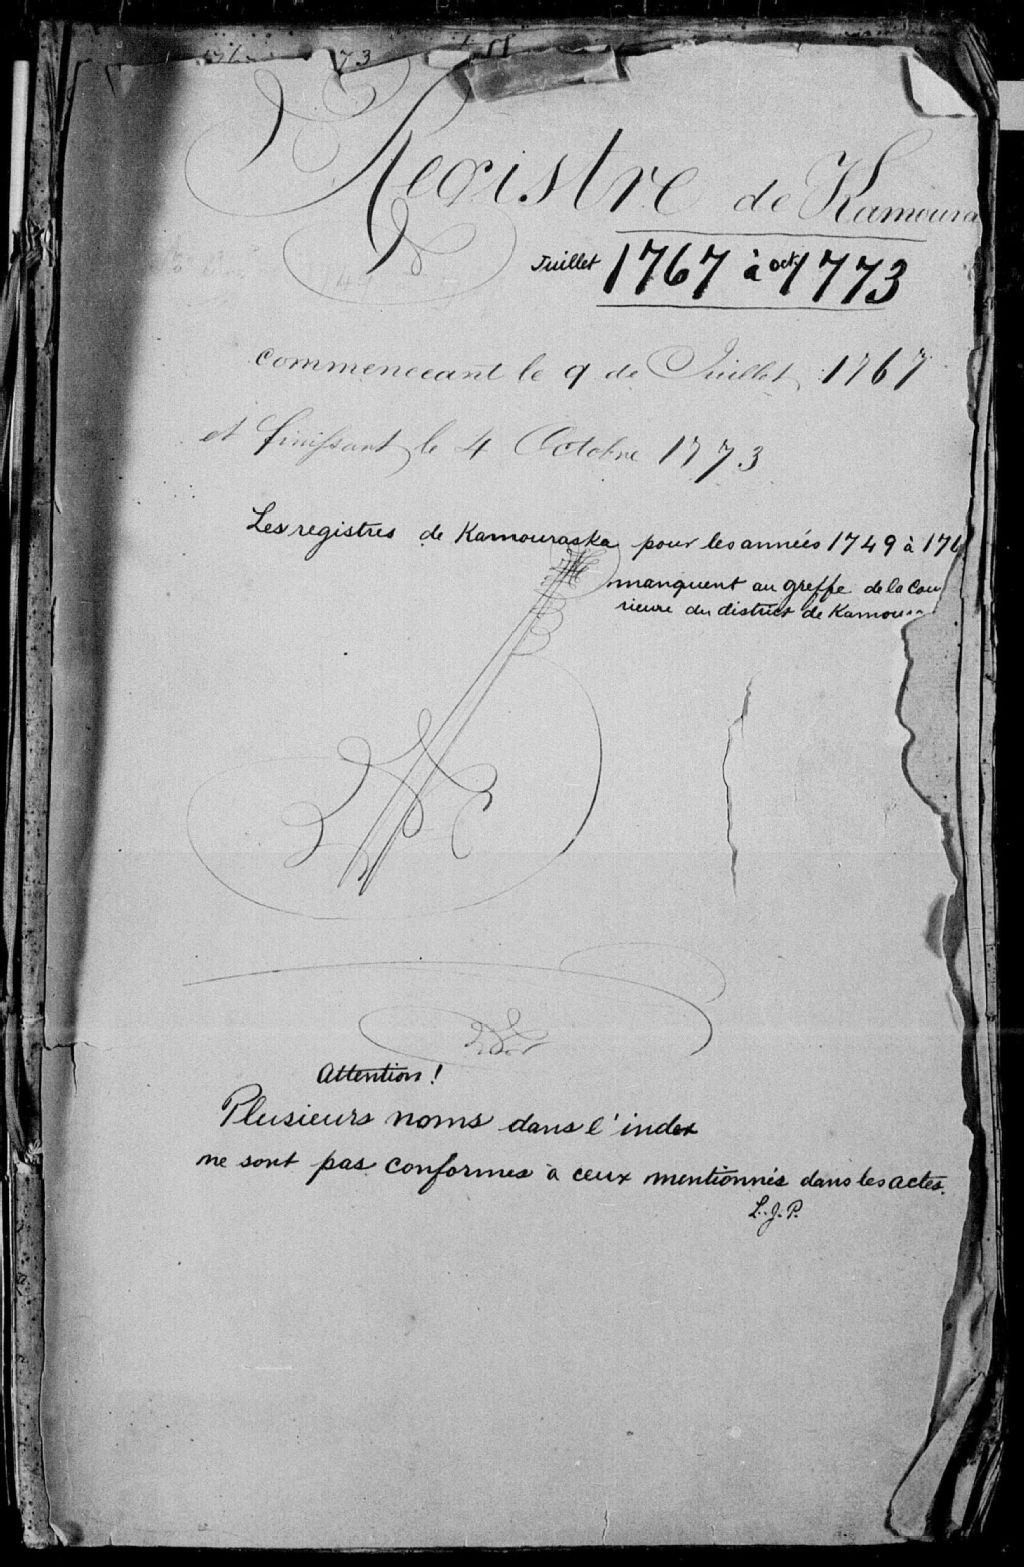 73
Registre de Kamoura
Juillet 1767 à oct. 1773
commenceant le 9 de Juillet 1767
et finissant le 4 Octobre 1773
Les registres de Kamouraska pour les années 1749 à 176
manquent au greffe de la Cou
rieure du district de Kamour
Attention!
Plusieurs noms dans l'index
ne sont pas conformes à ceux mentionnés dans les actes.
L.J.P.